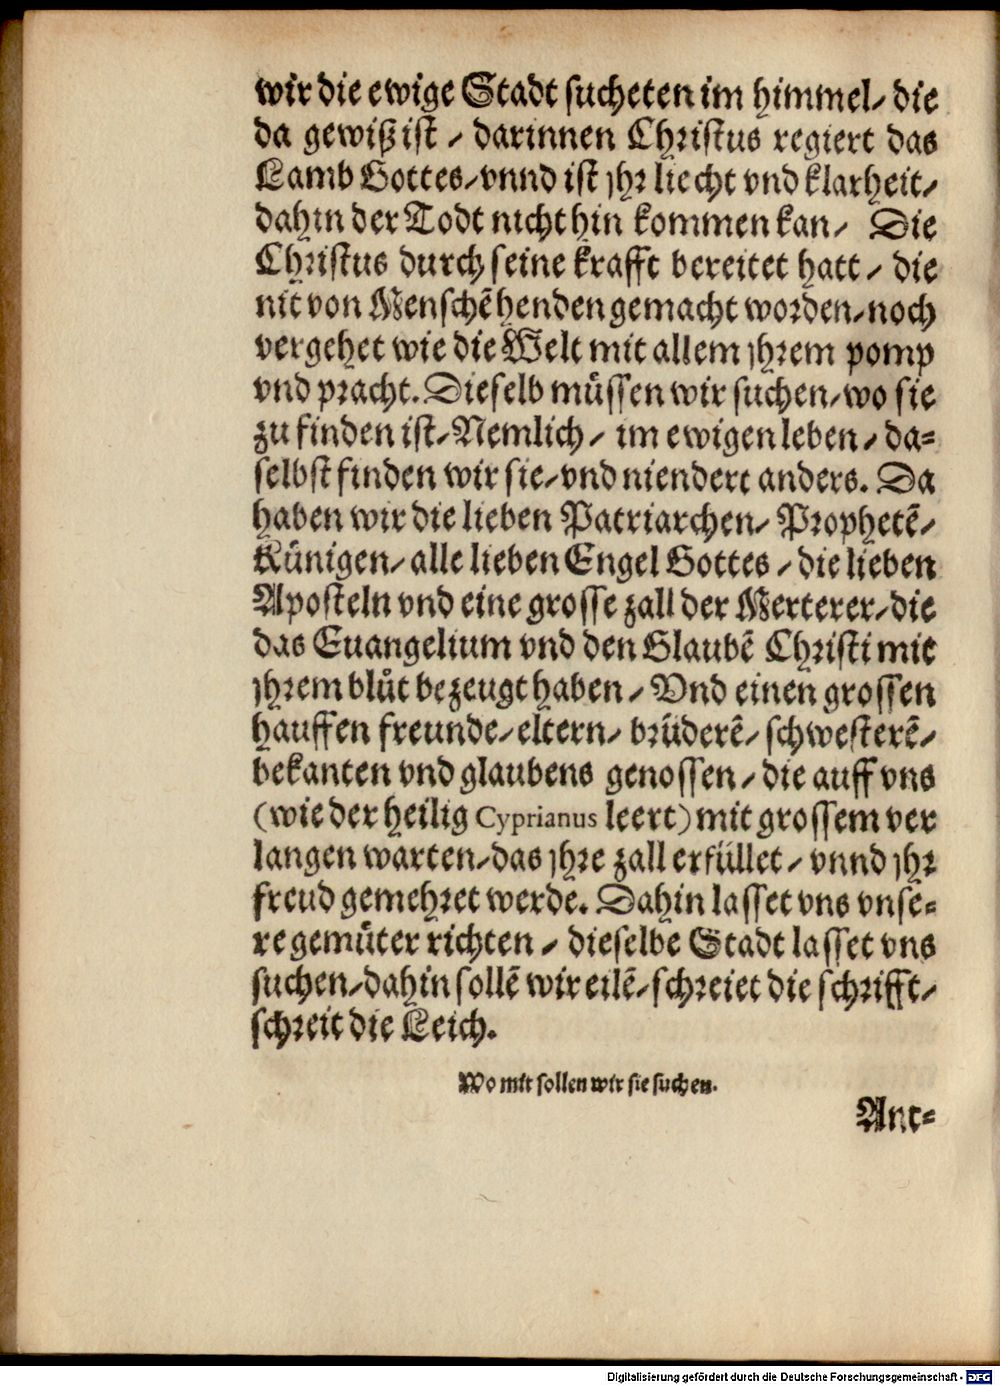 wir die ewige Stadt sucheten im himmel/ die
da gewiß ist / darinnen Christus regiert das
Lamb Gottes/vnnd ist jhr liecht vnd klarheit/
dahin der Todt nicht hin kommen kan/ Die
Christus durch seine krafft bereitet hatt / die
nit von Menschẽ henden gemacht worden/noch
vergehet wie die Welt mit allem jhrem pomp
vnd pracht. Dieselb müssen wir suchen/wo sie
zu finden ist/Nemlich / im ewigen leben / da-
selbst finden wir sie/vnd niendert anders. Da
haben wir die lieben Patriarchen/ Prophetẽ/
Künigen/ alle lieben Engel Gottes / die lieben
Aposteln vnd eine grosse zall der Merterer/die
das Euangelium vnd den Glaubẽ Christi mit
jhrem blůt bezeugt haben / Vnd einen grossen
hauffen freunde/eltern/ brüderẽ/ schwesterẽ/
bekanten vnd glaubens genossen / die auff vns
(wie der heilig Cyprianus leert) mit grossem ver
langen warten/das jhre zall erfüllet / vnnd jhr
freud gemehret werde. Dahin lasset vns vnse-
re gemüter richten / dieselbe Stadt lasset vns
suchen/dahin sollẽ wir eilẽ/schreiet die schrifft/
schreit die Leich.
Wo mit sollen wir sie suchen.
Ant-
Digitalisierung gefördert durch die Deutsche Forschungsgemeinschaft - DFG